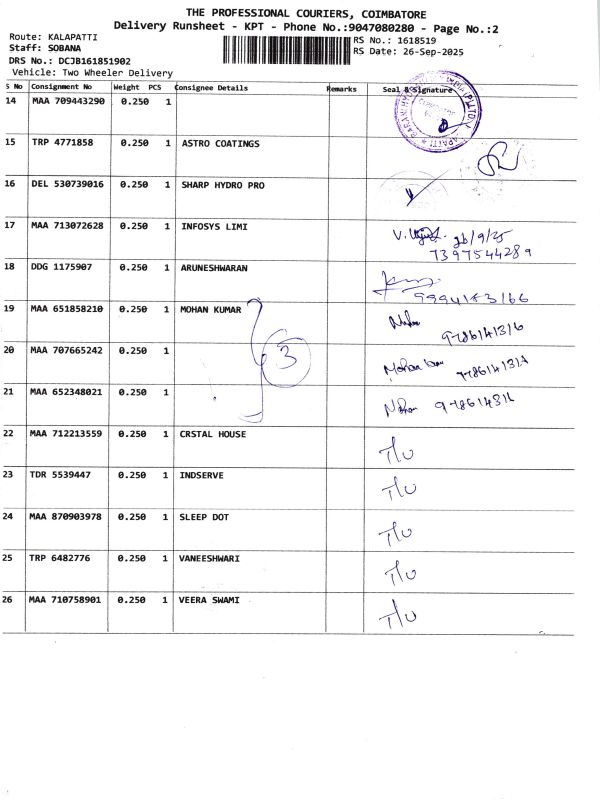 THE PROFESSIONAL COURIERS, COIMBATORE
Delivery Runsheet - KPT - Phone No.:9047080280 - Page No.:2
Route: KALAPATTI
Staff: SOBANA
DRS No.: DCJB161851902
Vehicle: Two Wheeler Delivery
RS No.: 1618519
RS Date: 26-Sep-2025
S No Consignment No Weight PCS Consignee Details Remarks Seal & Signature
14 MAA 709443290 0.250 1
15 TRP 4771858 0.250 1 ASTRO COATINGS
16 DEL 530739016 0.250 1 SHARP HYDRO PRO
17 MAA 713072628 0.250 1 INFOSYS LIMI 26/9/25
7397544289
18 DDG 1175907 0.250 1 ARUNESHWARAN
19 MAA 651858210 0.250 1 MOHAN KUMAR
20 MAA 707665242 0.250 1 3 Mohan
21 MAA 652348021 0.250 1
22 MAA 712213559 0.250 1 CRSTAL HOUSE T/U
23 TDR 5539447 0.250 1 INDSERVE T/U
24 MAA 870903978 0.250 1 SLEEP DOT T/U
25 TRP 6482776 0.250 1 VANEESHWARI T/U
26 MAA 710758901 0.250 1 VEERA SWAMI T/U